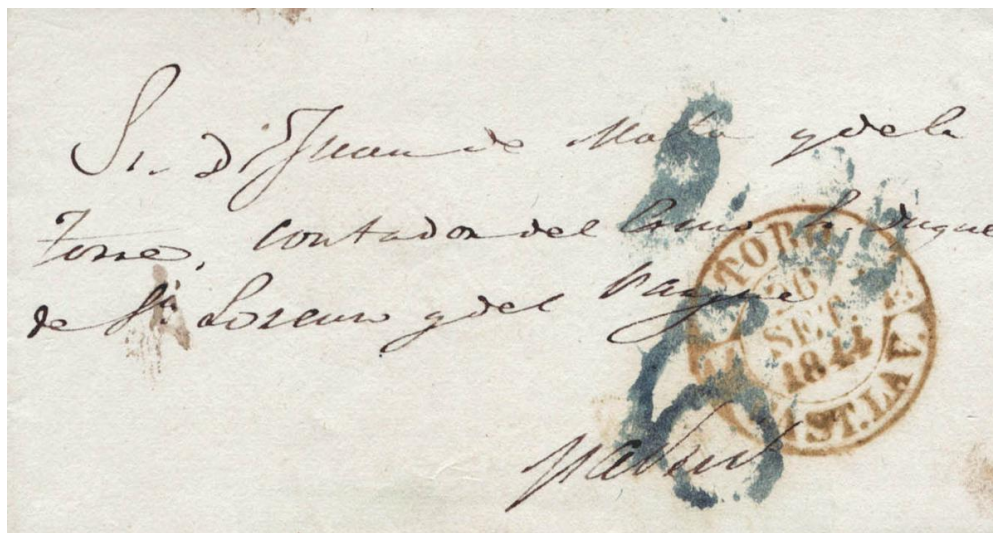 Sr. Dn Juan de Mata y de la
Torre, Contador del Exmo Sr. Duque
de Sn Lorenzo y del Parque
Madrid
TORO
26
SET
1844
CAST. LA V.